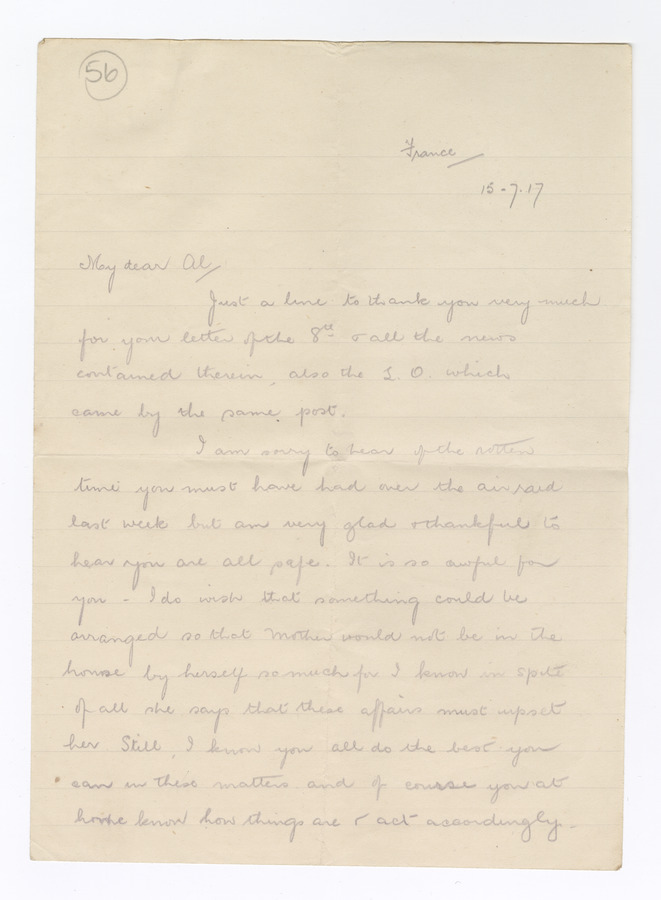 56
France
15-7.17
My dear Al/
Just a line to thank you very much
for your letter of the 8th & all the news
contained therein, also the L. O. which
came by the same post.
I am sorry to hear of the rotten
time you must have had over the air raid
last week but am very glad & thankful to
hear you are all safe. It is so awful for
you - I do wish that something could be
arranged so that Mother would not be in the
house by herself so much for I know in spite
of all she says that these affairs must upset
her Still, I know you all do the best you
can in these matters and of course you at
home know how things are & act accordingly.